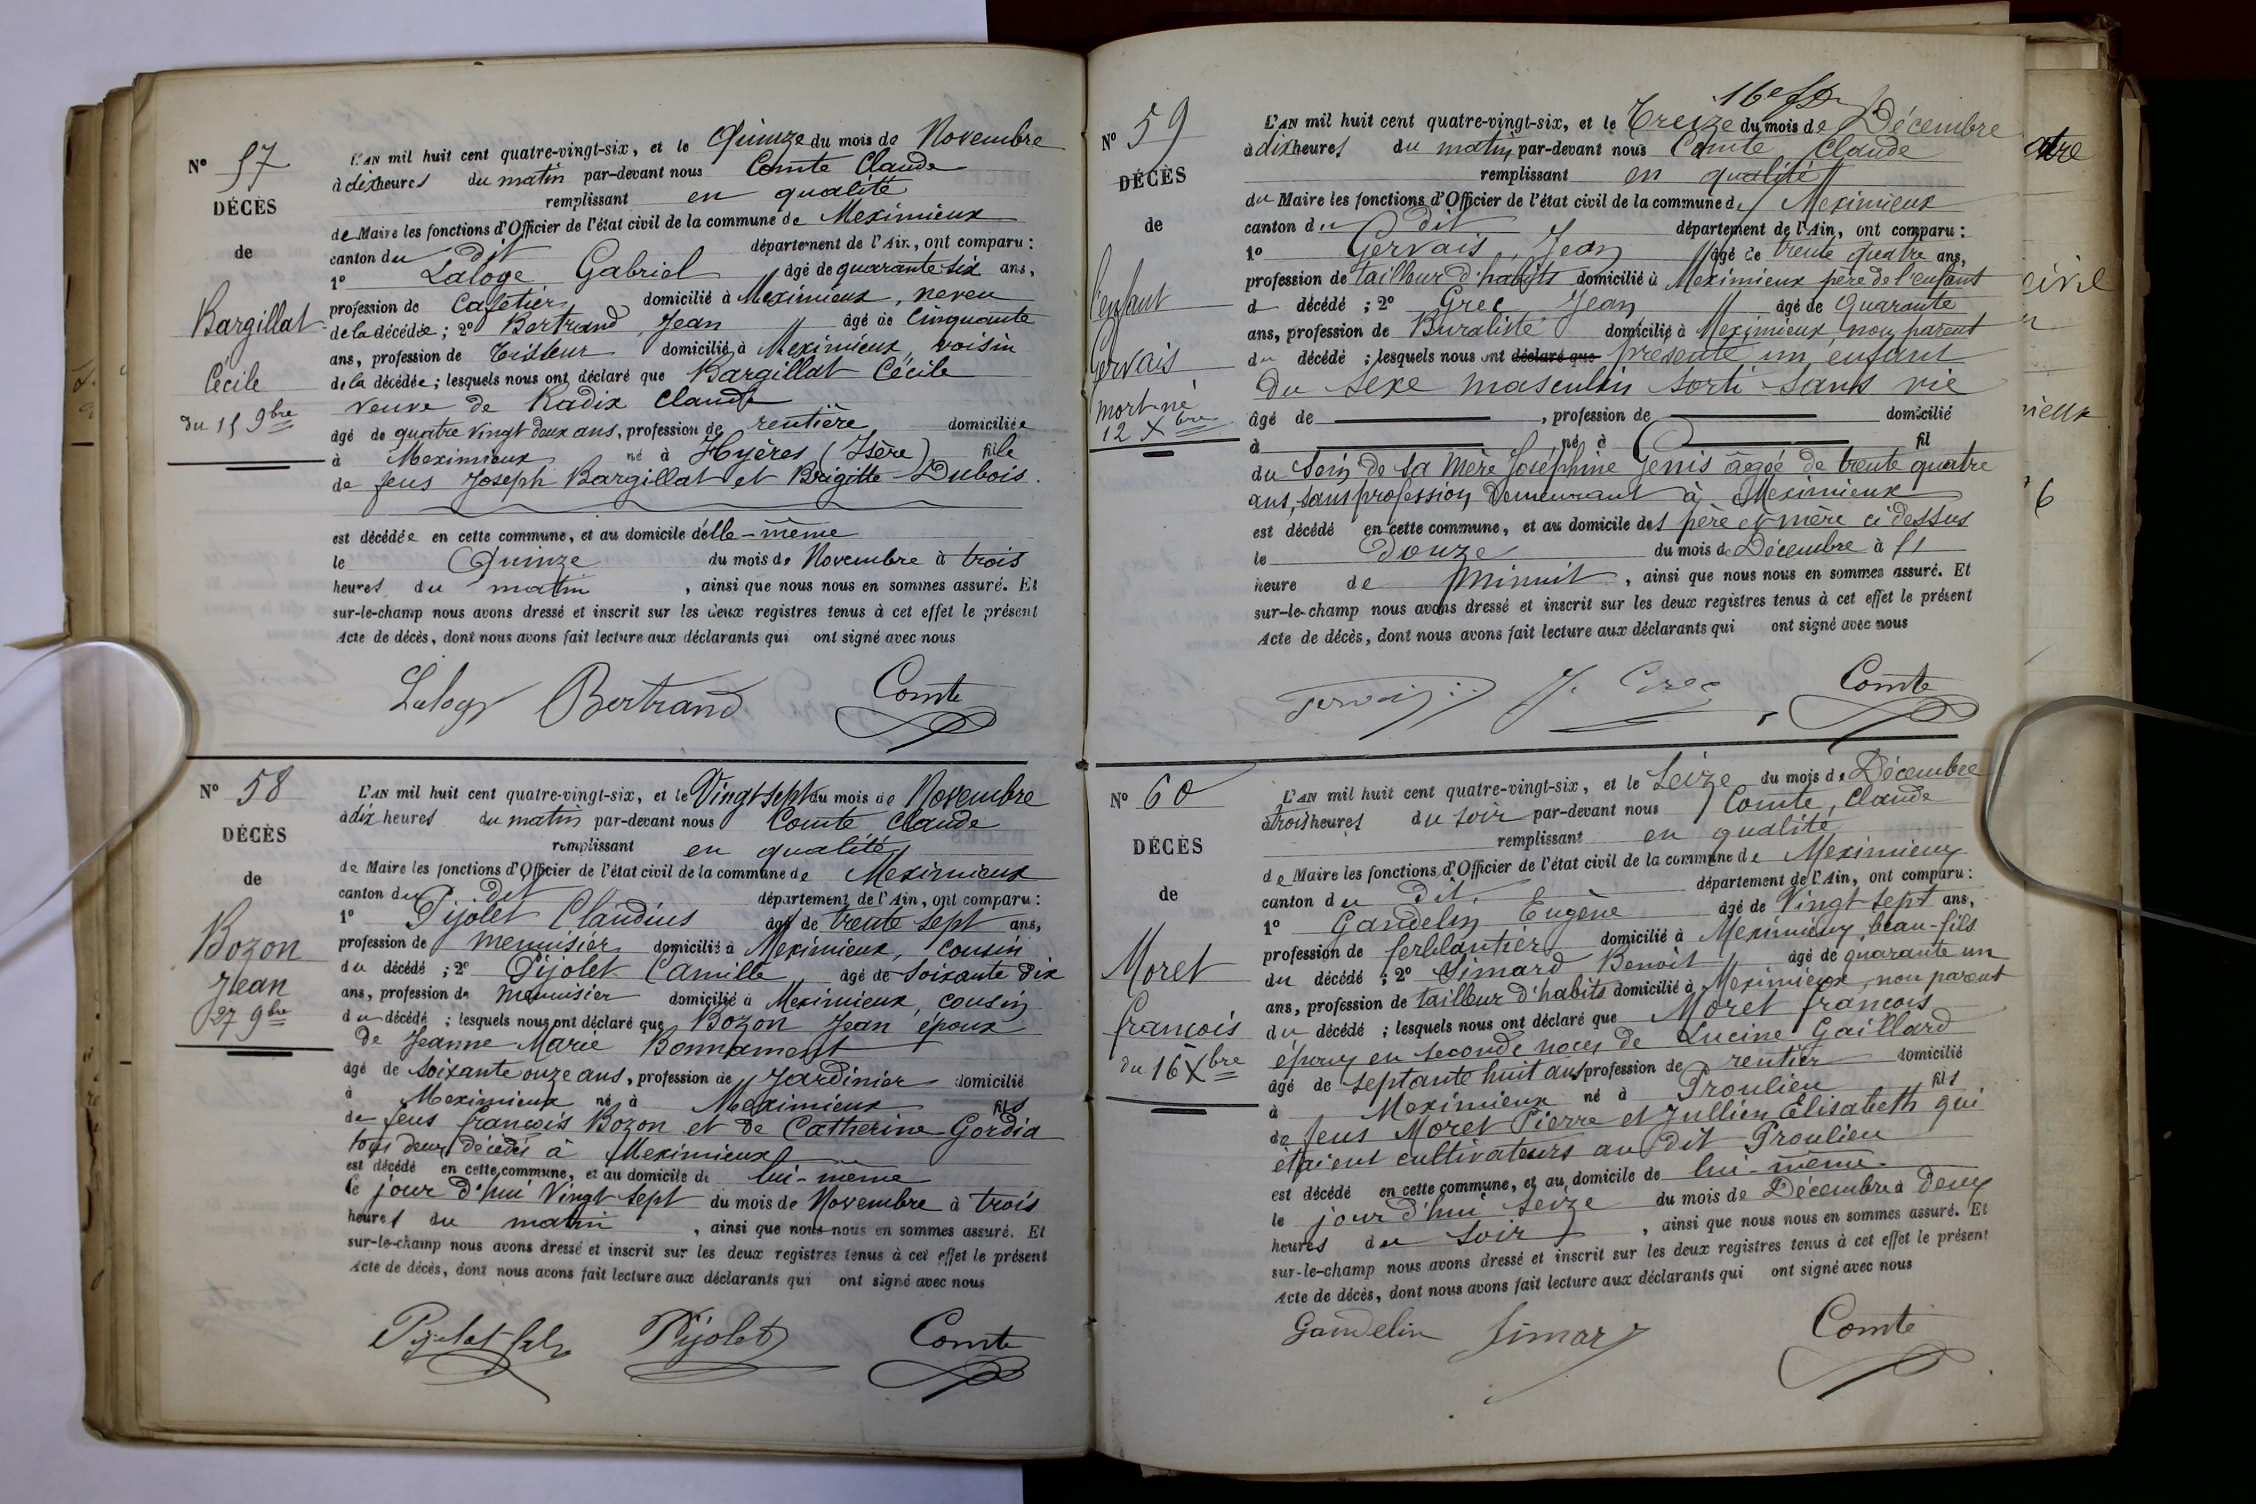 N° 57
DÉCÈS
de
Bargillat
Cécile
du 15 9bre
L'AN mil huit cent quatre-vingt-six, et le Quinze du mois de Novembre
à dix heures du matin par-devant nous Comte Claude
remplissant en qualité
de Maire les fonctions d'Officier de l'état civil de la commune de Meximieux
canton du dit département de l'Ain, ont comparu :
1° Laloge Gabriel âgé de quarante six ans,
profession de Cafetier domicilié à Meximieux, neveu
de la décédée ; 2° Bertrand Jean âgé de Cinquante
ans, profession de Tisseur domicilié à Meximieux, voisin
de la décédée ; lesquels nous ont déclaré que Bargillat Cécile
veuve de Radix Claude
âgé de quatre vingt deux ans, profession de rentière domiciliée
à Meximieux né à Hyères (Isère) fille
de feus Joseph Bargillat et Brigitte Dubois.
est décédée en cette commune, et au domicile d'elle-même
le Quinze du mois de Novembre à trois
heures du matin , ainsi que nous nous en sommes assuré. Et
sur-le-champ nous avons dressé et inscrit sur les deux registres tenus à cet effet le présent
Acte de décès, dont nous avons fait lecture aux déclarants qui ont signé avec nous
Laloge Bertrand Comte
N° 58
DÉCÈS
de
Bozon
Jean
27 9bre
L'AN mil huit cent quatre-vingt-six, et le Vingt sept du mois de Novembre
à dix heures du matin par-devant nous Comte Claude
remplissant en qualité
de Maire les fonctions d'Officier de l'état civil de la commune de Meximieux
canton du dit département de l'Ain, ont comparu :
1° Pijolet Claudius âgé de trente sept ans,
profession de menuisier domicilié à Meximieux, cousin
du décédé ; 2° Pijolet Camille âgé de soixante dix
ans, profession de menuisier domicilié à Meximieux, cousin
du décédé ; lesquels nous ont déclaré que Bozon Jean époux
de Jeanne-Marie Bonnament
âgé de soixante onze ans, profession de Jardinier domicilié
à Meximieux né à Meximieux fils
de feus francois Bozon et de Catherine Gordia
tous deux décédés à Meximieux
est décédé en cette commune, et au domicile de lui-même
le jour d'hui Vingt sept du mois de Novembre à trois
heures du matin , ainsi que nous nous en sommes assuré. Et
sur-le-champ nous avons dressé et inscrit sur les deux registres tenus à cet effet le présent
Acte de décès, dont nous avons fait lecture aux déclarants qui ont signé avec nous
Pijolet fils Pijolet Comte
N° 59
DÉCÈS
de
l'enfant
Gervais
mort-né
12 Xbre
16e
L'AN mil huit cent quatre-vingt-six, et le Treize du mois de Décembre
à dix heures du matin par-devant nous Comte Claude
remplissant en qualité
du Maire les fonctions d'Officier de l'état civil de la commune de Meximieux
canton du dit département de l'Ain, ont comparu :
1° Gervais Jean âgé de trente quatre ans,
profession de tailleur d'habits domicilié à Meximieux père de l'enfant
d décédé ; 2° Grec Jean âgé de Quarante
ans, profession de Buraliste domicilié à Meximieux non parent
du décédé ; lesquels nous ont déclaré que présenté un enfant
du sexe masculin sorti sans vie
âgé de , profession de domicilié
à né à fil
du sein de sa mère Joséphine Genis âgée de trente quatre
ans, sans profession, demeurant à Meximieux
est décédé en cette commune, et au domicile des père et mère ci dessus
le Douze du mois de Décembre à 11
heure de Minuit , ainsi que nous nous en sommes assuré. Et
sur-le-champ nous avons dressé et inscrit sur les deux registres tenus à cet effet le présent
Acte de décès, dont nous avons fait lecture aux déclarants qui ont signé avec nous
Gervais J. Grec Comte
N° 60
DÉCÈS
de
Moret
francois
du 16 Xbre
L'AN mil huit cent quatre-vingt-six, et le Seize du mois de Décembre
à trois heures du soir par-devant nous Comte, Claude
remplissant en qualité
de Maire les fonctions d'Officier de l'état civil de la commune de Meximieux
canton du dit département de l'Ain, ont comparu :
1° Gandelin Eugène âgé de Vingt sept ans,
profession de ferblantier domicilié à Meximieux beau-fils
du décédé ; 2° Simard Benoît âgé de quarante un
ans, profession de tailleur d'habits domicilié à Meximieux, non parent
du décédé ; lesquels nous ont déclaré que Moret francois
époux en seconde noces de Lucine Gaillard
âgé de septante huit ans profession de rentier domicilié
à Meximieux né à Proulieu fils
de feus Moret Pierre et Jullien Elisabeth qui
étaient cultivateurs au dit Proulieu
est décédé en cette commune, et au domicile de lui-même
le jour d'hui seize du mois de Décembre à deux
heures du soir , ainsi que nous nous en sommes assuré. Et
sur-le-champ nous avons dressé et inscrit sur les deux registres tenus à cet effet le présent
Acte de décès, dont nous avons fait lecture aux déclarants qui ont signé avec nous
Gandelin Simard Comte